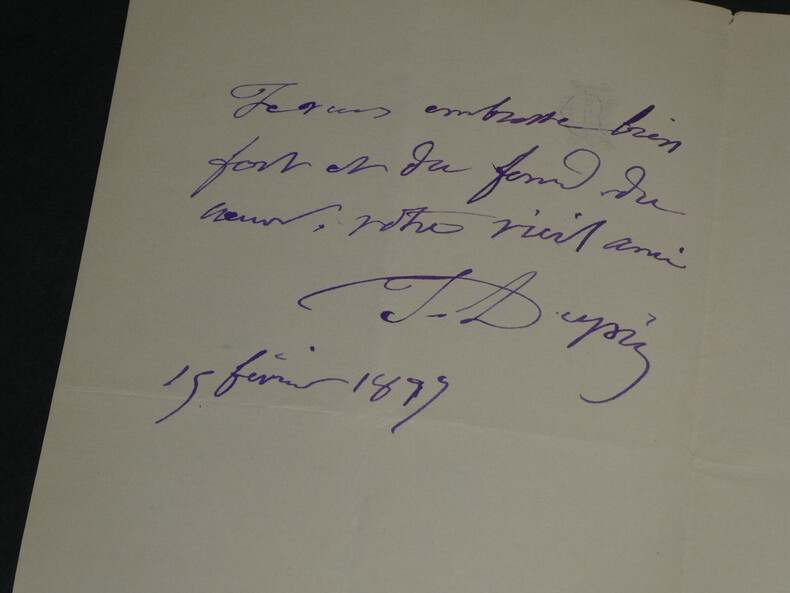 Je vous embrasse bien
fort et du fond du
cœur. votre vieil ami
J. Dupin
15 février 1899